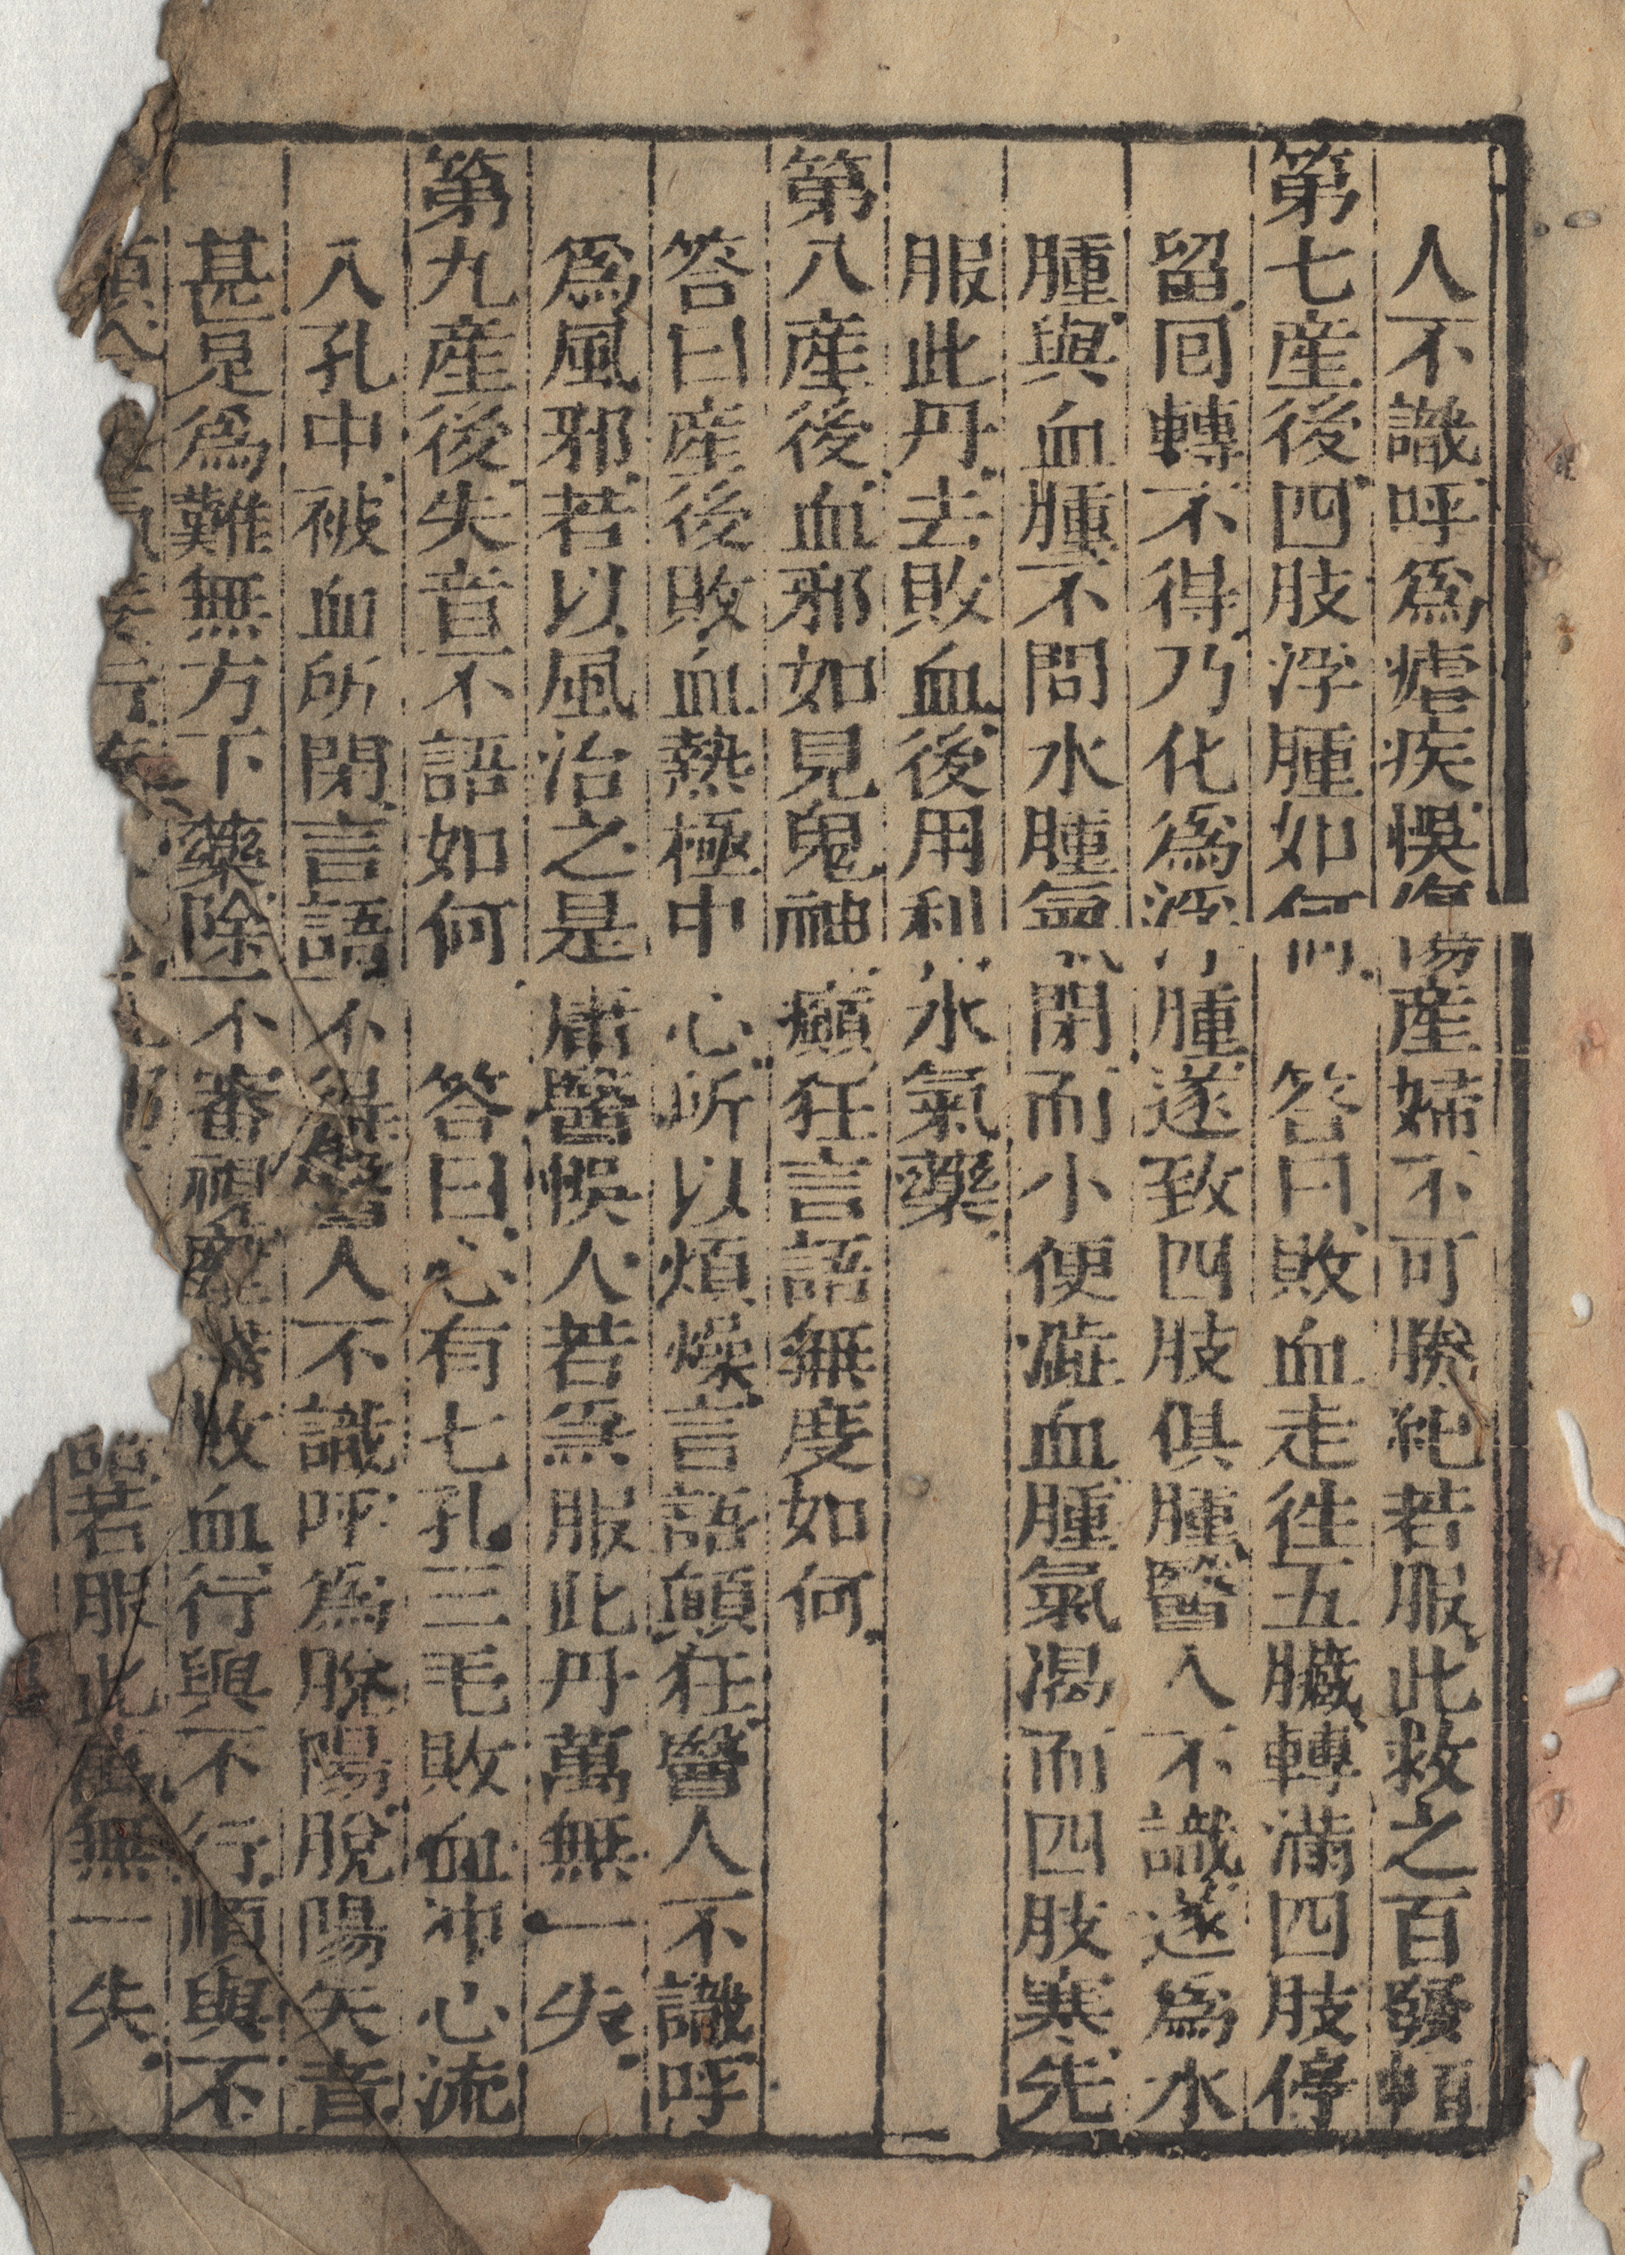 人不識呼爲瘧疾悞傷産婦不可勝紀若服此救之百發
第七産後四肢浮腫如何答曰敗血走徃五臟轉滿四肢停
留囘轉不得乃化爲浮腫遂致四肢俱腫醫人不識遂爲水
腫與血腫不問水腫氣閉而小便澁血腫氣渴而四肢寒先
服此丹去敗血後用利水氣藥
第八産後血邪如見鬼神癲狂言語無度如何
答曰産後敗血熱極中心所以煩燥言語顛狂醫人不識呼
爲風邪若以風治之是庸醫悞人若急服此丹萬無一失
第九産後失音不語如何答曰心有七孔三毛敗血冲心流
八孔中被血所閉言語不得醫人不識呼爲脫陽脫陽失音
甚是爲難無方下藥除不審視敗血行與不行順與不
若服此無一失